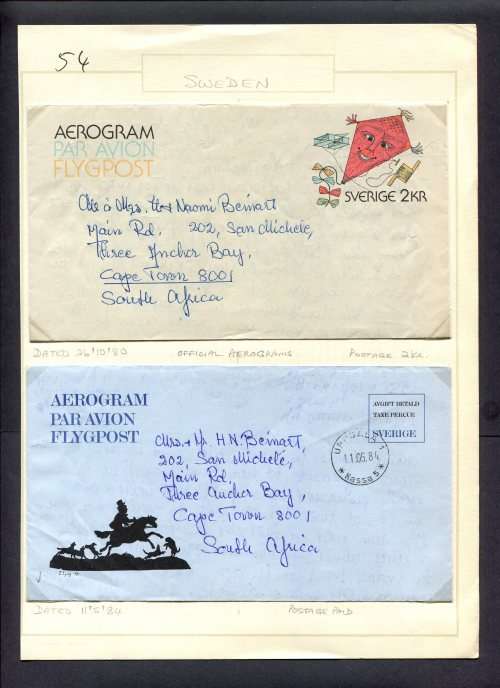 54
SWEDEN
AEROGRAM
PAR AVION
FLYGPOST
SVERIGE 2KR
Naomi Beinart
Main Rd. 202, San Michele,
Three Anchor Bay,
Cape Town 8001
South Africa
DATED 26'10'80 OFFICIAL AEROGRAMS POSTAGE 2kr.
AEROGRAM
PAR AVION
FLYGPOST
AVGIFT BETALD
TAXE PERCUE
SVERIGE
UPPSALA 1
11.05.84
* Kassa 5 *
Mrs. & Mr. H.N. Beinart,
202, San Michelé,
Main Rd,
Three Anchor Bay,
Cape Town 8001
South Africa
DATED 11'5'84 POSTAGE PAID